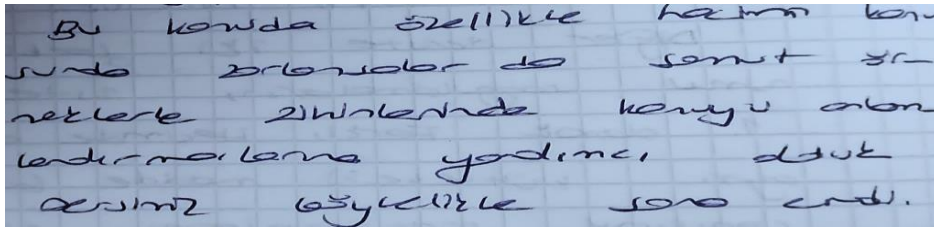 Bu konuda özellikle hacim kon-
sunda zorlansalar da somut ör-
neklerle zihinlerinde konuyu anlam
landırmalarına yardımcı olduk
dersimiz böylelikle sona erdi.